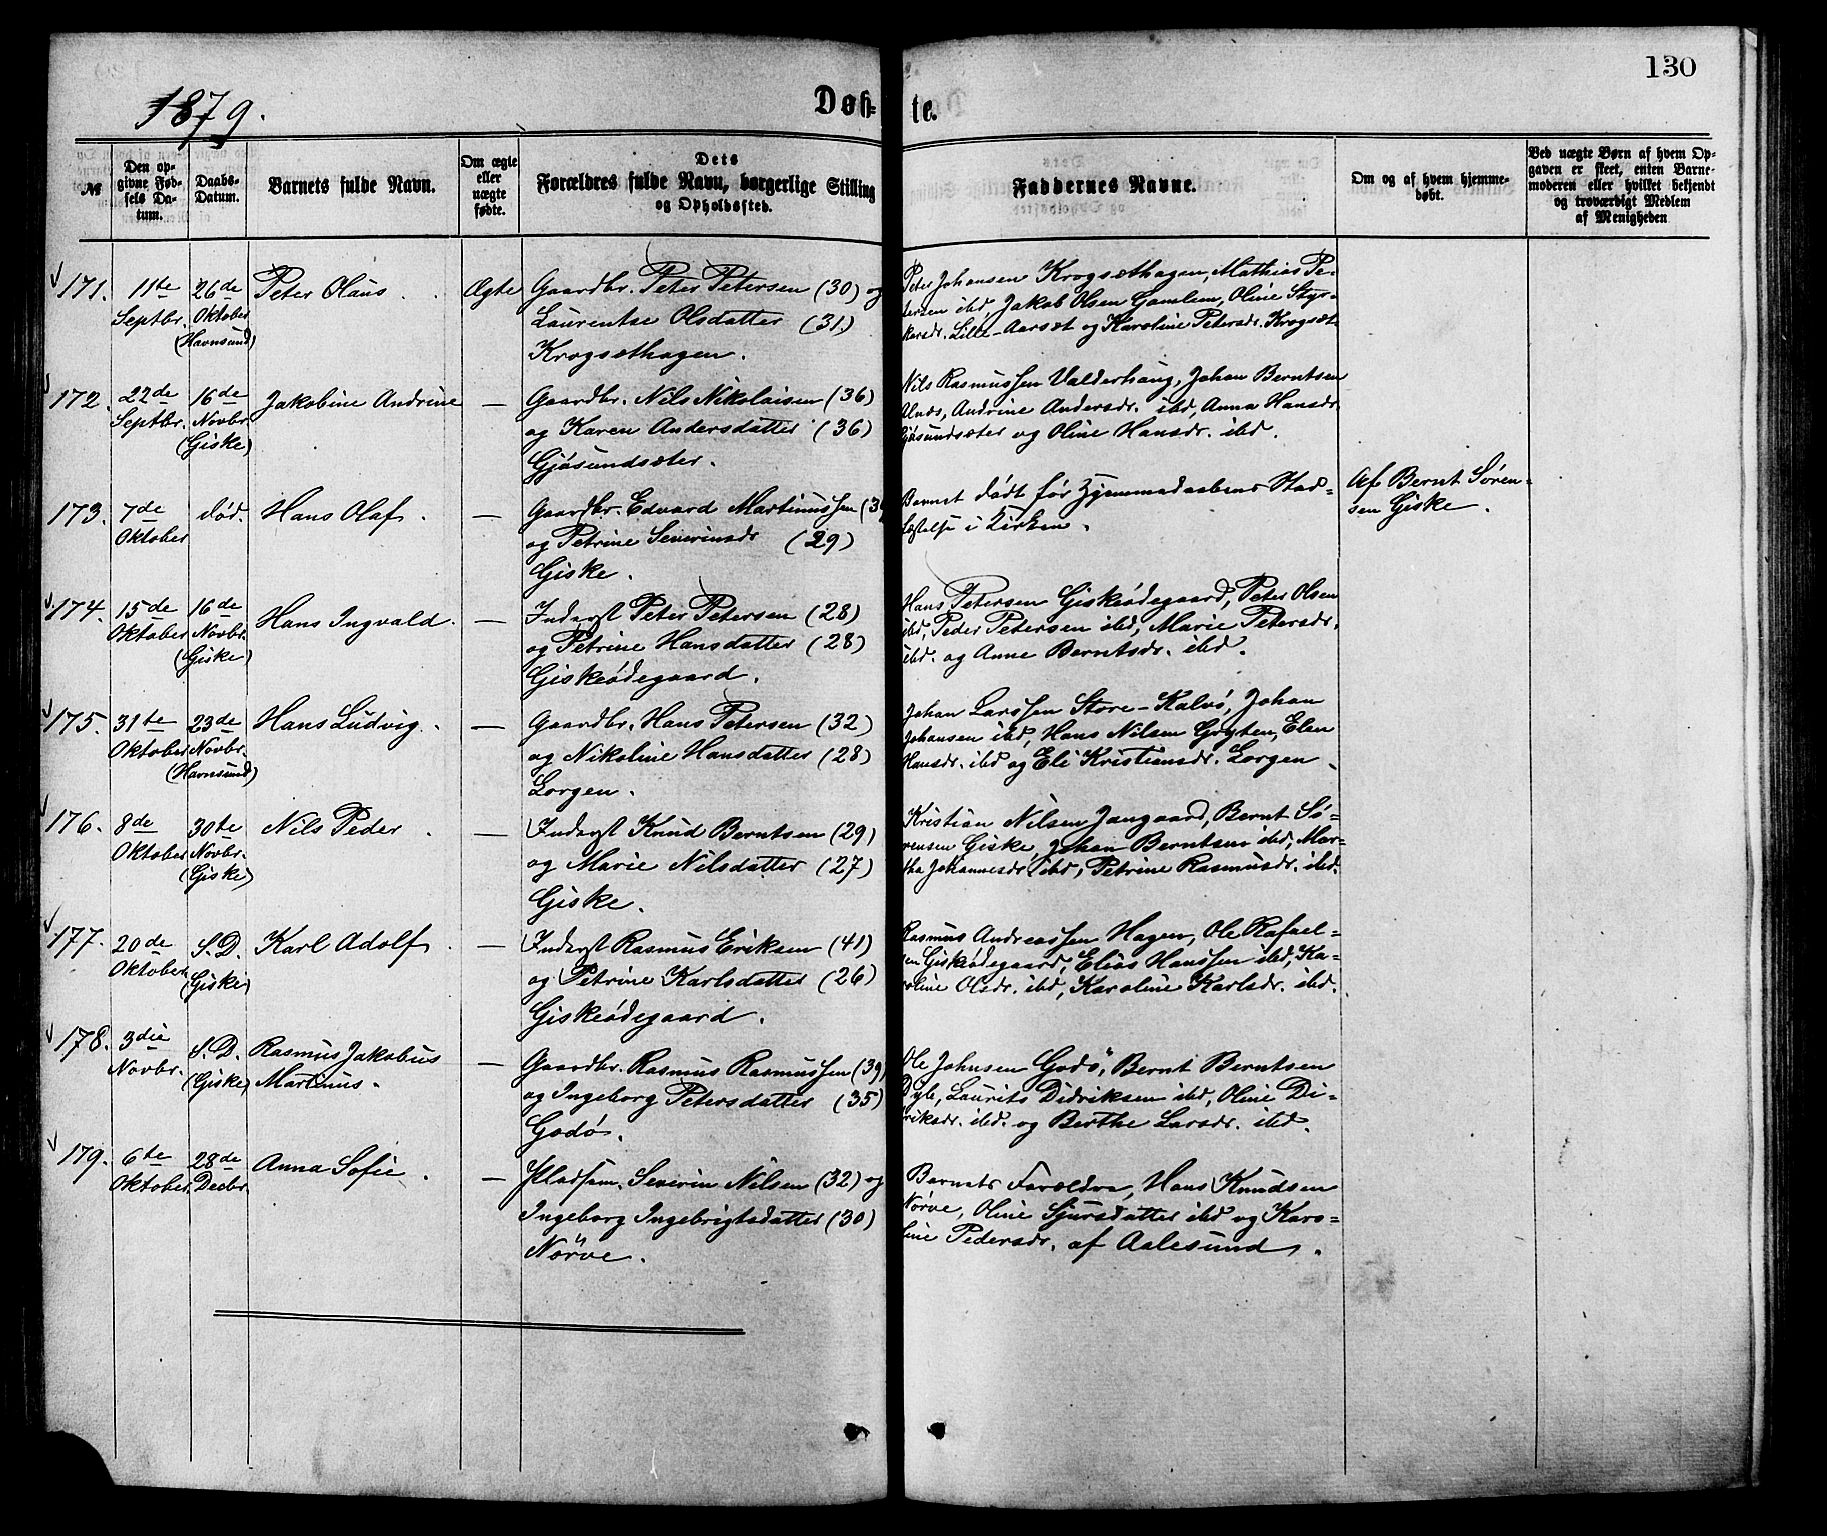 1879.
Døb-
te.
130
№
Den op-
givne Fød-
sels Da-
tum.
Daabs-
Datum.
Barnets fulde Navn.
Om ægte
eller
uægte
fødte.
Dets
Forældres fulde Navn, borgerlige Stilling
og Opholdssted.
Faddernes Navne.
Om og af hvem hjemme-
døbt.
Ved uægte Børn af hvem Op-
gaven er skeet, enten Barne-
moderen eller hvilket bekjendt
og troværdigt Medlem
af Menigheden
171. 11te Septbr. 26de Oktober (Havnsund) Peter Olaus. Ægte
Gaardbr. Peter Petersen (30) og
Laurentse Olsdatter (31)
Krogsæthagen.
Peter Johansen Krogsæthagen, Mathias Pe-
tersen ibd, Jakob Olsen Gamlem, Oline Styr-
karsdr. Lille-Aarsæt og Karoline Petersdr. Krogsæt
172. 22de Septbr. 16de Novbr. (Giske) Jakobine Andrine —
Gaardbr. Nils Nikolaisen (36)
og Karen Andersdatter (36)
Gjøsundsæter.
Nils Rasmussen Valderhaug, Johan Berntsen
Alnæs, Andrine Andersdr. ibd, Anna Hansdr.
Gjøsundsæter og Oline Hansdr. ibd.
173. 7de Oktober død. Hans Olaf. —
Gaardbr. Edvard Martinussen
og Petrine Severinsdr (29)
Giske.
Barnet dødt før Hjemmedaabens Stad-
fæstelse i Kirken.
Af Bernt Søren-
sen Giske.
174. 15de Oktober 16de Novbr. (Giske) Hans Ingvald. —
Inderst Peter Petersen (28)
og Petrine Hansdatter (28)
Giskeødegaard.
Hans Petersen Giskeødegaard, Peter Olsen
ibd, Peder Petersen ibd, Marie Petersdr.
ibd. og Anne Berntsdr. ibd.
175. 31te Oktober 23de Novbr. (Havnsund) Hans Ludvig. —
Gaardbr. Hans Petersen (32)
og Nikoline Hansdatter (28)
Lorgen.
Johan Larssen Store-Kalvø, Johan
Johansen ibd, Hans Nilsen Gryten, Elen
Hansdr. ibd og Eli Kristiansdr. Lorgen.
176. 8de Oktober 30te Novbr. (Giske) Nils Peder. —
Inderst Knud Berntsen (29)
og Marie Nilsdatter (27)
Giske.
Kristian Nilsen Jangaard, Bernt Sø-
rensen Giske, Johan Berntsen ibd, Mar-
tha Johannesdr ibd, Petrine Rasmusdr. ibd.
177. 20de Oktober S. D. (Giske) Karl Adolf. —
Inderst Rasmus Eriksen (41)
og Petrine Karlsdatter (26)
Giskeødegaard.
Rasmus Andreassen Hagen, Ole Rafael-
sen Giskeødegaard, Elias Hanssen ibd, Ka-
roline Olsdr. ibd, Karoline Karlsdr. ibd.
178. 3die Novbr. S. D. (Giske) Rasmus Jakobus
Martinus. —
Gaardbr. Rasmus Rasmussen (39)
og Ingeborg Petersdatter (35)
Godø.
Ole Johnsen Godø, Bernt Berntsen
Dyb, Laurits Didriksen ibd, Oline Di-
driksdr. ibd. og Berthe Larsdr. ibd.
179. 6te Oktober 28de Decbr. Anna Sofie. —
Severin Nilsen (32) og
Ingeborg Ingebrigtsdatter (30)
Nørve.
Barnets Forældre, Hans Knudsen
Nørve, Oline Sjursdatter ibd og Karo-
line Pedersdr. af Aalesund.